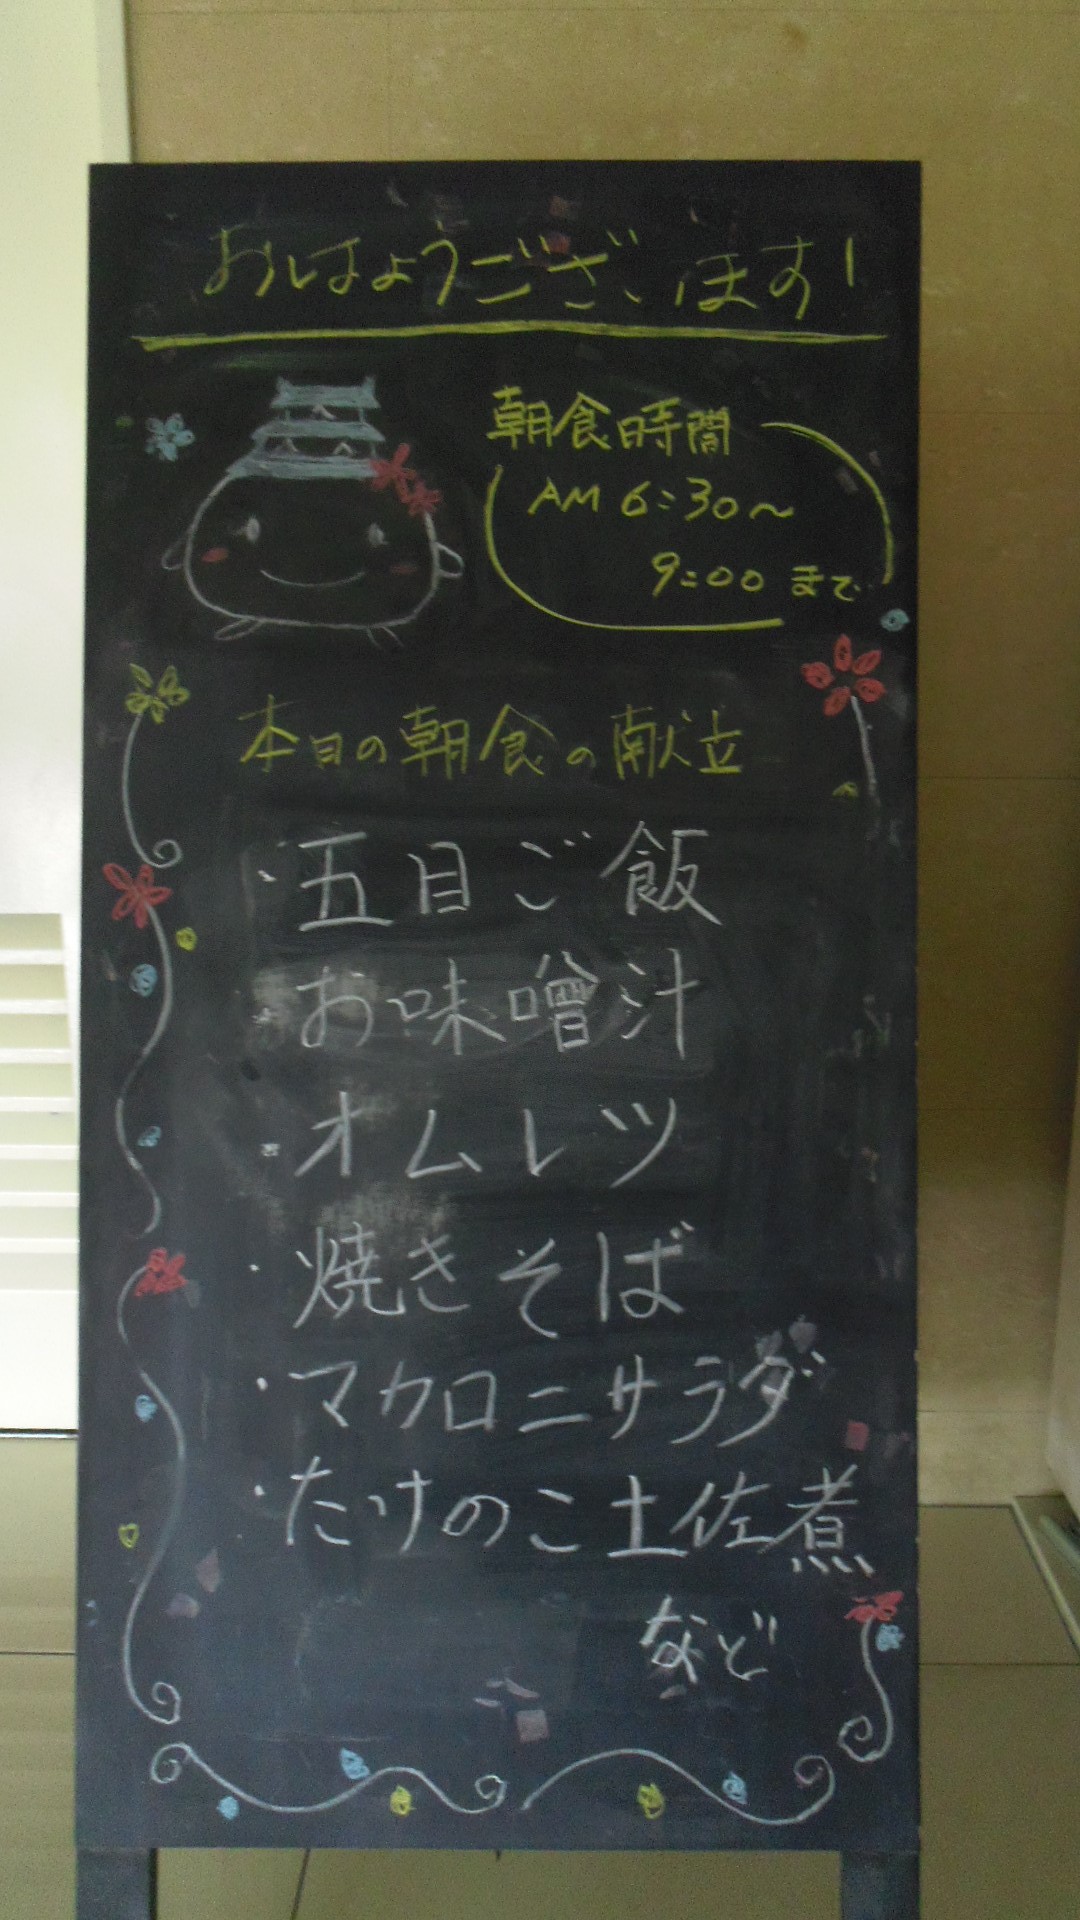 おはようございます!
朝食時間
AM 6:30～
9:00 まで
本日の朝食の献立
・五目ご飯
・お味噌汁
・オムレツ
・焼きそば
・マカロニサラダ
・たけのこ土佐煮
など